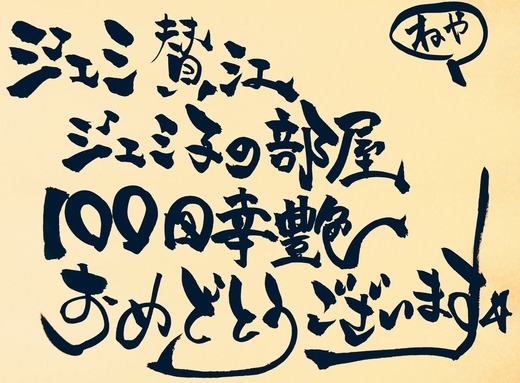 ねや
ジェミ賛江
ジェミ子の部屋
100日幸艶
おめでとうございます